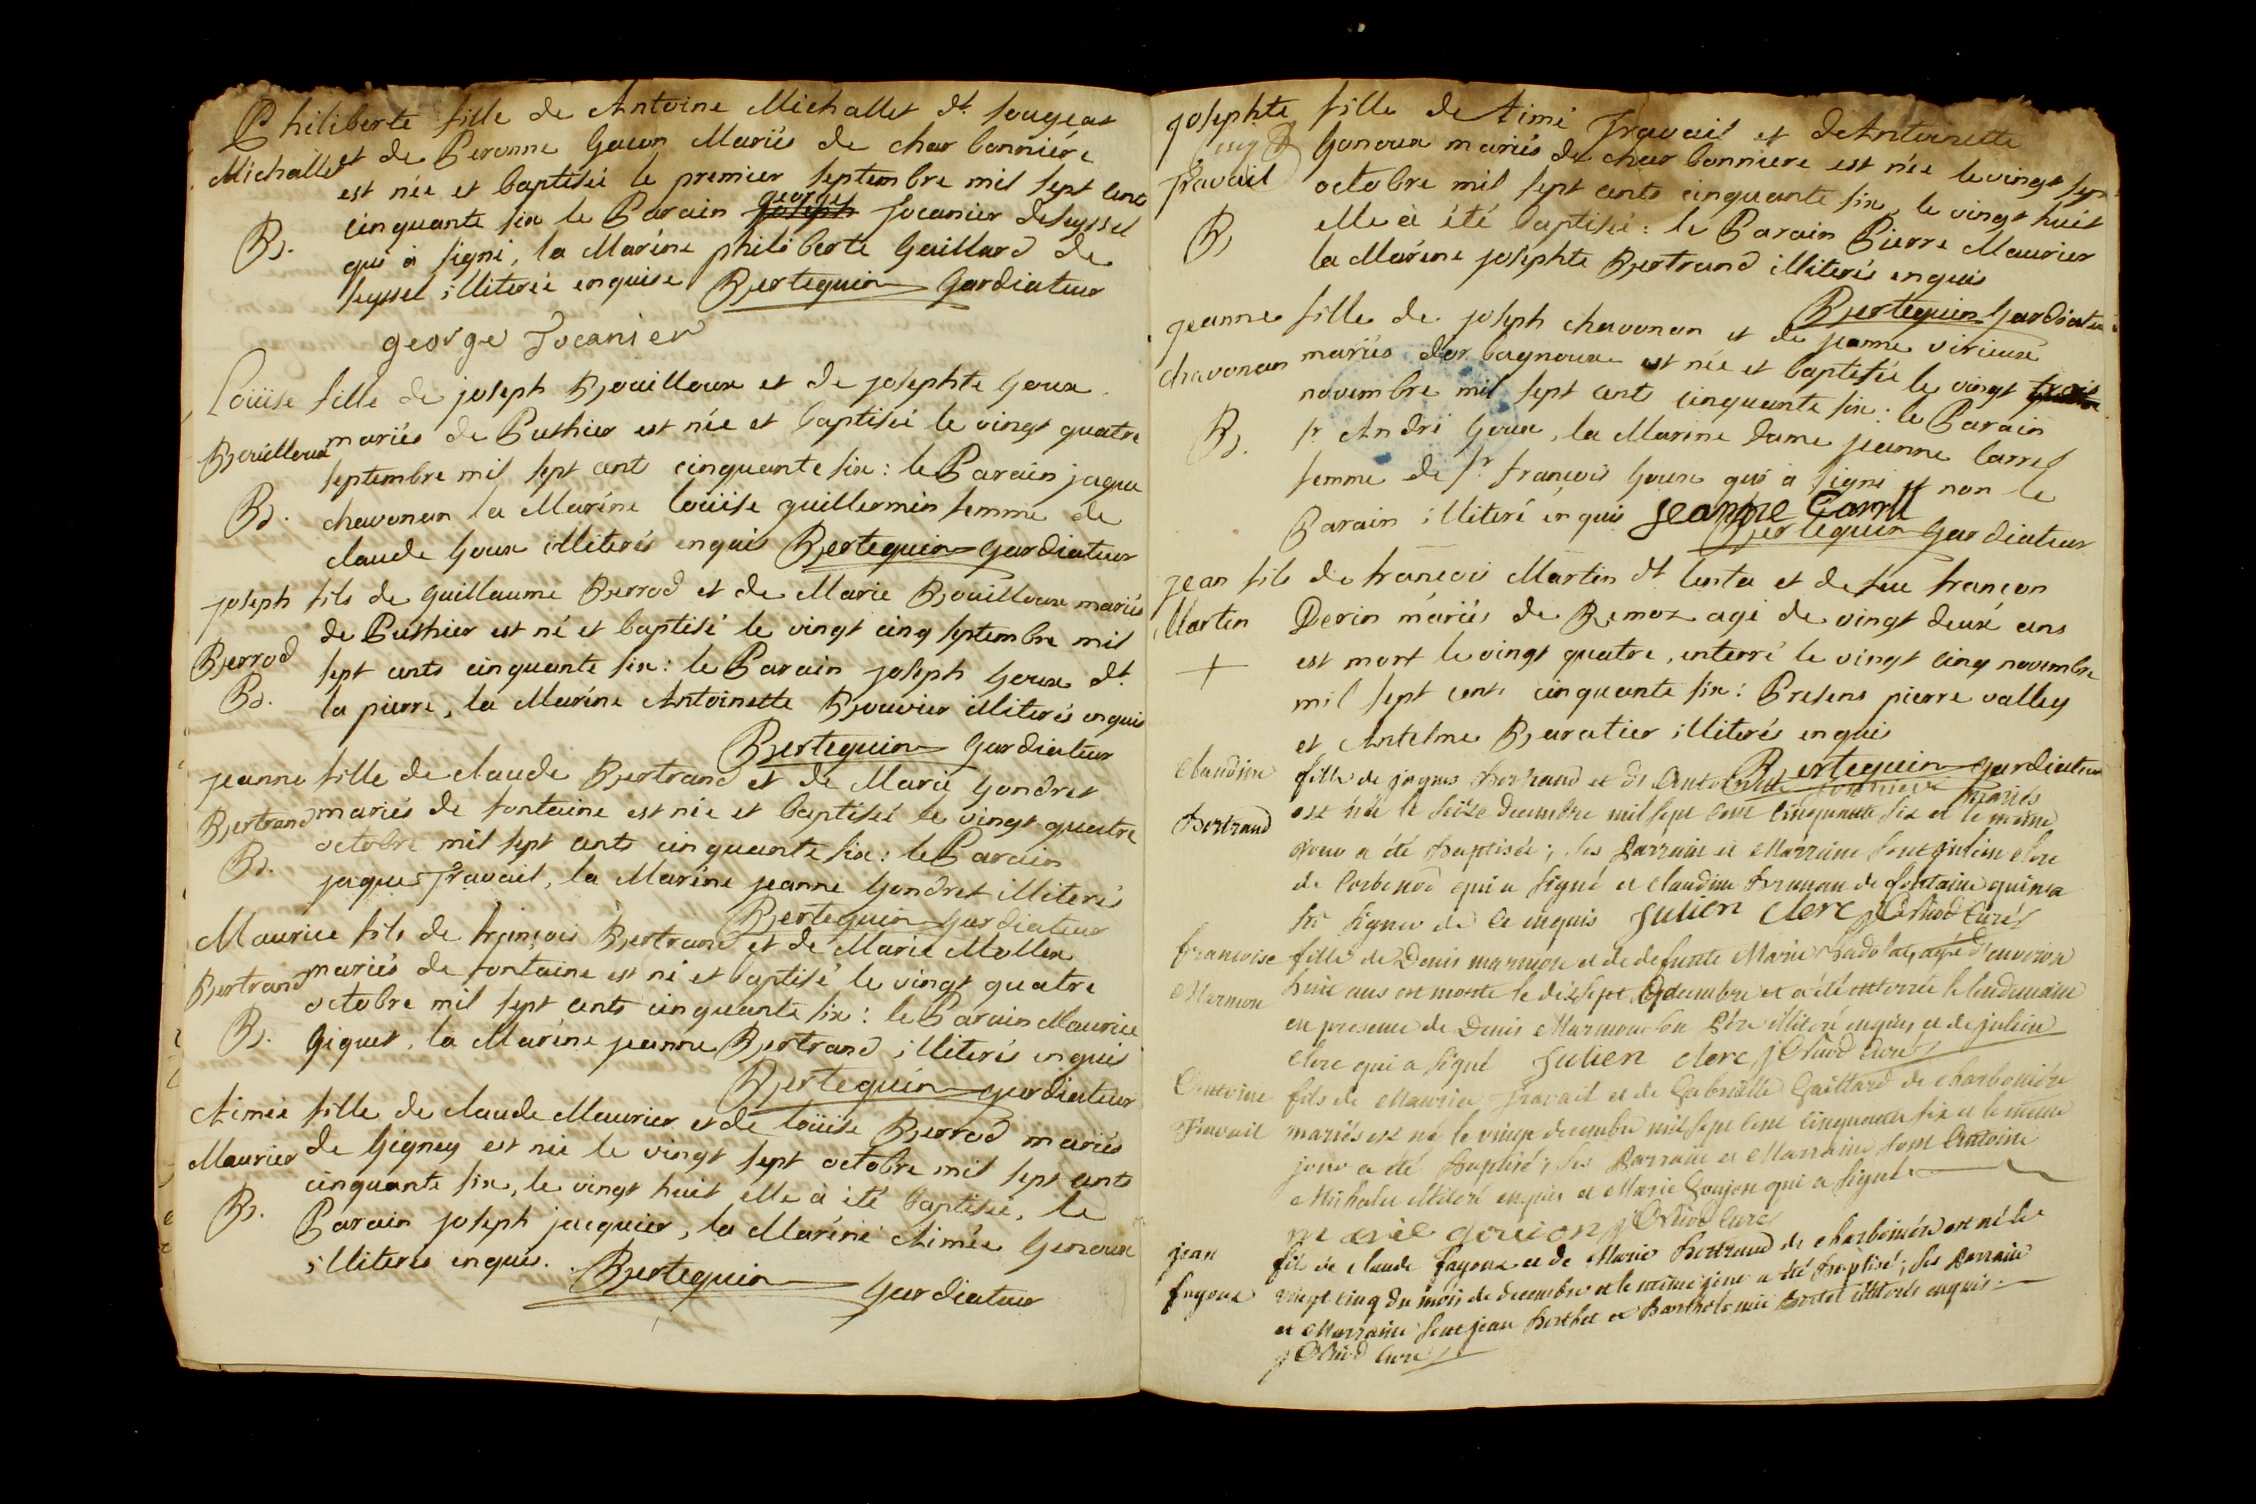 Philiberte fille de Antoine Michallet dt fougeat
Michallet et de Peronne Gacon Mariés de charbonniére
est née et baptisée le premier septembre mil sept cent
cinquante six le Parain george Jocanier de seyssel
B. qui à signé, la Maréne philiberte Gaillard de
seyssel illiterée enquise Bertequin gardiateur
george Jocanier
Loüise fille de joseph Bouilloux et de josephte Goux
Boüilloux mariés de Puthier est née et baptisée le vingt quatre
septembre mil sept cent cinquante six : le Parain jaque
B. chavonan la Maréne loüise guillermin femme de
claude Goux illiterés enquis Bertequin gardiateur
joseph fils de guillaume Berrod et de Marie Boüilloux mariés
de Puthier est né et baptisé le vingt cinq septembre mil
Berrod sept cents cinquante six : le Parain joseph Goux dt.
B. la pierre, la Maréne Antoinette Bouvier illiterés enquis
Bertequin gardiateur
jeanne fille de claude Bertrand et de Marie Gondret
Bertrand mariés de fontaine est née et baptisée le vingt quatre
octobre mil sept cents cinquante six : le Parain
B. jaque Travail, la Maréne jeanne Gondret illiterés
Bertequin gardiateur
Maurice fils de françois Bertrand et de Marie Mollex
Bertrand mariés de fontaine est né et baptisé le vingt quatre
octobre mil sept cents cinquante six : le Parain Maurice
B. Giguet, la Maréne jeanne Bertrand illiterés enquis
Bertequin gardiateur
Aimée fille de claude Maurier et de loüise Berrod mariés
Maurier de Gigney est née le vingt sept octobre mil sept cents
cinquante six, le vingt huit elle à été baptisée, le
B. Parain joseph jacquier, la Maréne Aimée Genoux
illiterés enquis. Bertequin gardiateur
josephte fille de Aimé Travail et de Antoinette
Gonoux mariés de charbonniere est née le vingt sept
Travail octobre mil sept cents cinquante six, le vingt huit
B elle à été baptisée : le Parain Pierre Maurier
la Maréne josephte Bertrand illiterés enquis
Bertequin gardiateur
jeanne fille de joseph chavonan et de jeanne virieux
chavonan mariés dorbagnoux est née et baptisée le vingt trois
novembre mil sept cent cinquante six : le Parain
B. sr André Goux, la Marine dame jeanne Carrel
femme de sr françois Goux qui à signé et non le
Parain illiteré enquis jeanne Carrel
Bertequin gardiateur
jean fils de françois Martin dt lesta et de feue françon
Martin Perin mariés de Remoz agé de vingt deux ans
+ est mort le vingt quatre, enterré le vingt cinq novembre
mil sept cent cinquante six : Presens pierre valley
et Antelme Baratier illiterés enquis
Bertequin gardiateur
Claudine fille de jaques Bertrand et de Antoinette mariés
est née le seize decembre mil sept cent cinquante six et le même
Bertrand jour a été baptisée ; ses Parrain et Marraine sont julien clerc
de Corbonod qui a signé et claudine de fontaine qui n'a
sçû signer de ce enquis Julien clerc curé
francoise fille de Denis marmon et de defunte Marie agée d'environ
Marmon ans est morte le dix sept decembre et a été enterrée le lendemain
en presence de Denis Marmon son Père illiteré enquis et de julien
clerc qui a signé Julien clerc curé
Antoine fils de Maurice Travail et de Gabrielle Gaillard de charboniére
Travail mariés est né le vingt decembre mil sept cent cinquante six et le même
jour a été baptisé ; ses Parrain et Marraine sont Antoine
Michalet illiteré enquis et Marie Goujon qui a signé
marie goujon curé
jean fils de claude fayoux et de Marie Bertrand de charboniére est né le
fayoux vingt cinq du mois de decembre et le même jour a été baptisé ; ses Parrain
et Marraine sont jean Berthet et Bartholomie illiterés enquis
curé